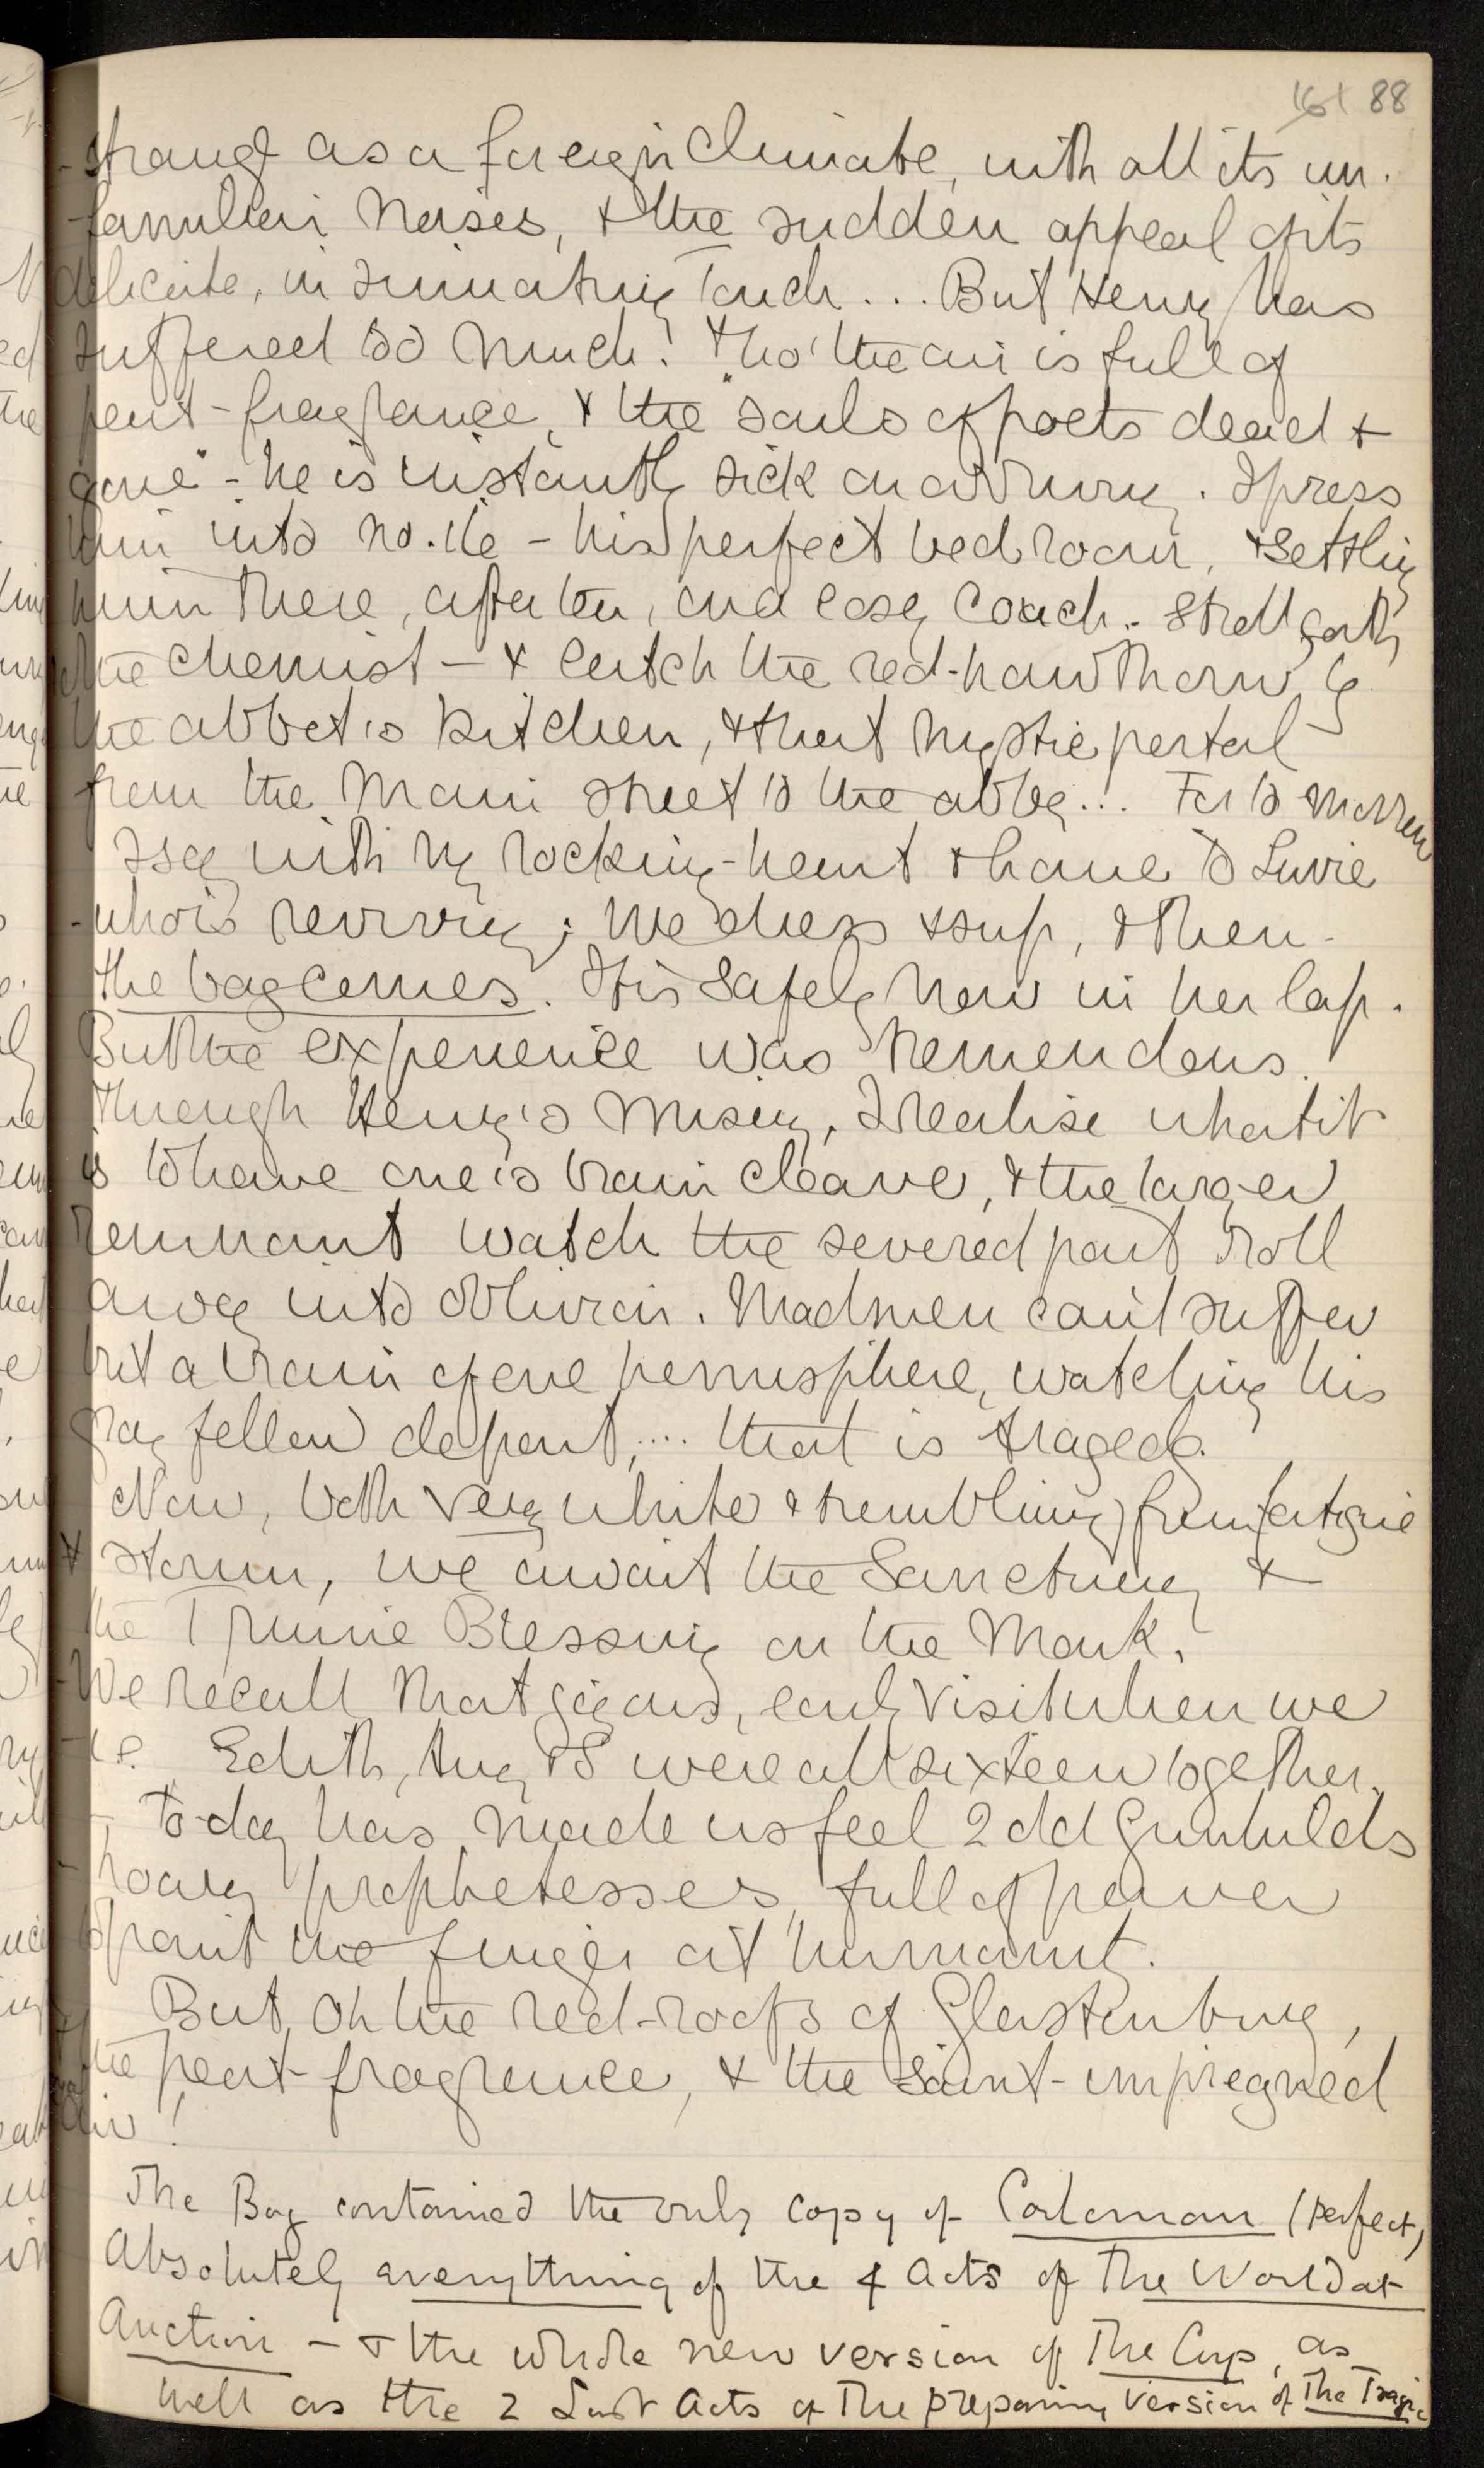 161 88
strange as a foreign climate, with all its un-
familiar noises, & the sudden appeal of its
delicate, insinuating Touch... But Henry has
suffered so much! Tho' the air is full of
peat-fragrance, & the "souls of poets dead &
gone" - he is instantly sick on arriving. I press
him into no. 16 - his perfect bedroom, & settling
him there, after tea, on a cosy Couch. Stroll forth
to the Chemist - & catch the red-hawthorn by
the abbot's Kitchen, & that mystic portal
from the Main street to the abbey... For to morrow
I say with my rocking-heart & home to Love
who is reviving; We dress & sup, & then -
the bag comes. It is safely now in her lap.
But the experience was tremendous.
Through Henry's misery, I realise what it
is to have one's brain cleave, & the larger
remnant watch the severed part roll
away into oblivion. Madmen can't suffer
but a brain of one hemisphere, watching his
gray fellow depart,... that is tragedy.
Now, both very white & trembling from fatigue
& storm, we await the Sanctuary &
the Triune Blessing on the Monk.
We recall that joyous, early visit when we
i.e. Edith, Amy & I were all sixteen together.
To-day has made us feel 2 old Gunhilds
hoary prophetesses, full of power
to point the finger at humanity.
But, Oh the red-roofs of Glastonbury,
the peat-fragrance, & the saint-impregned
air!
The Bag contained the only Copy of Carloman (Perfect,)
Absolutely everything of the 4 Acts of The World at
Auction - & the whole new version of The Cup, as
well as the 2 Last Acts of The preparing version of The Tragic